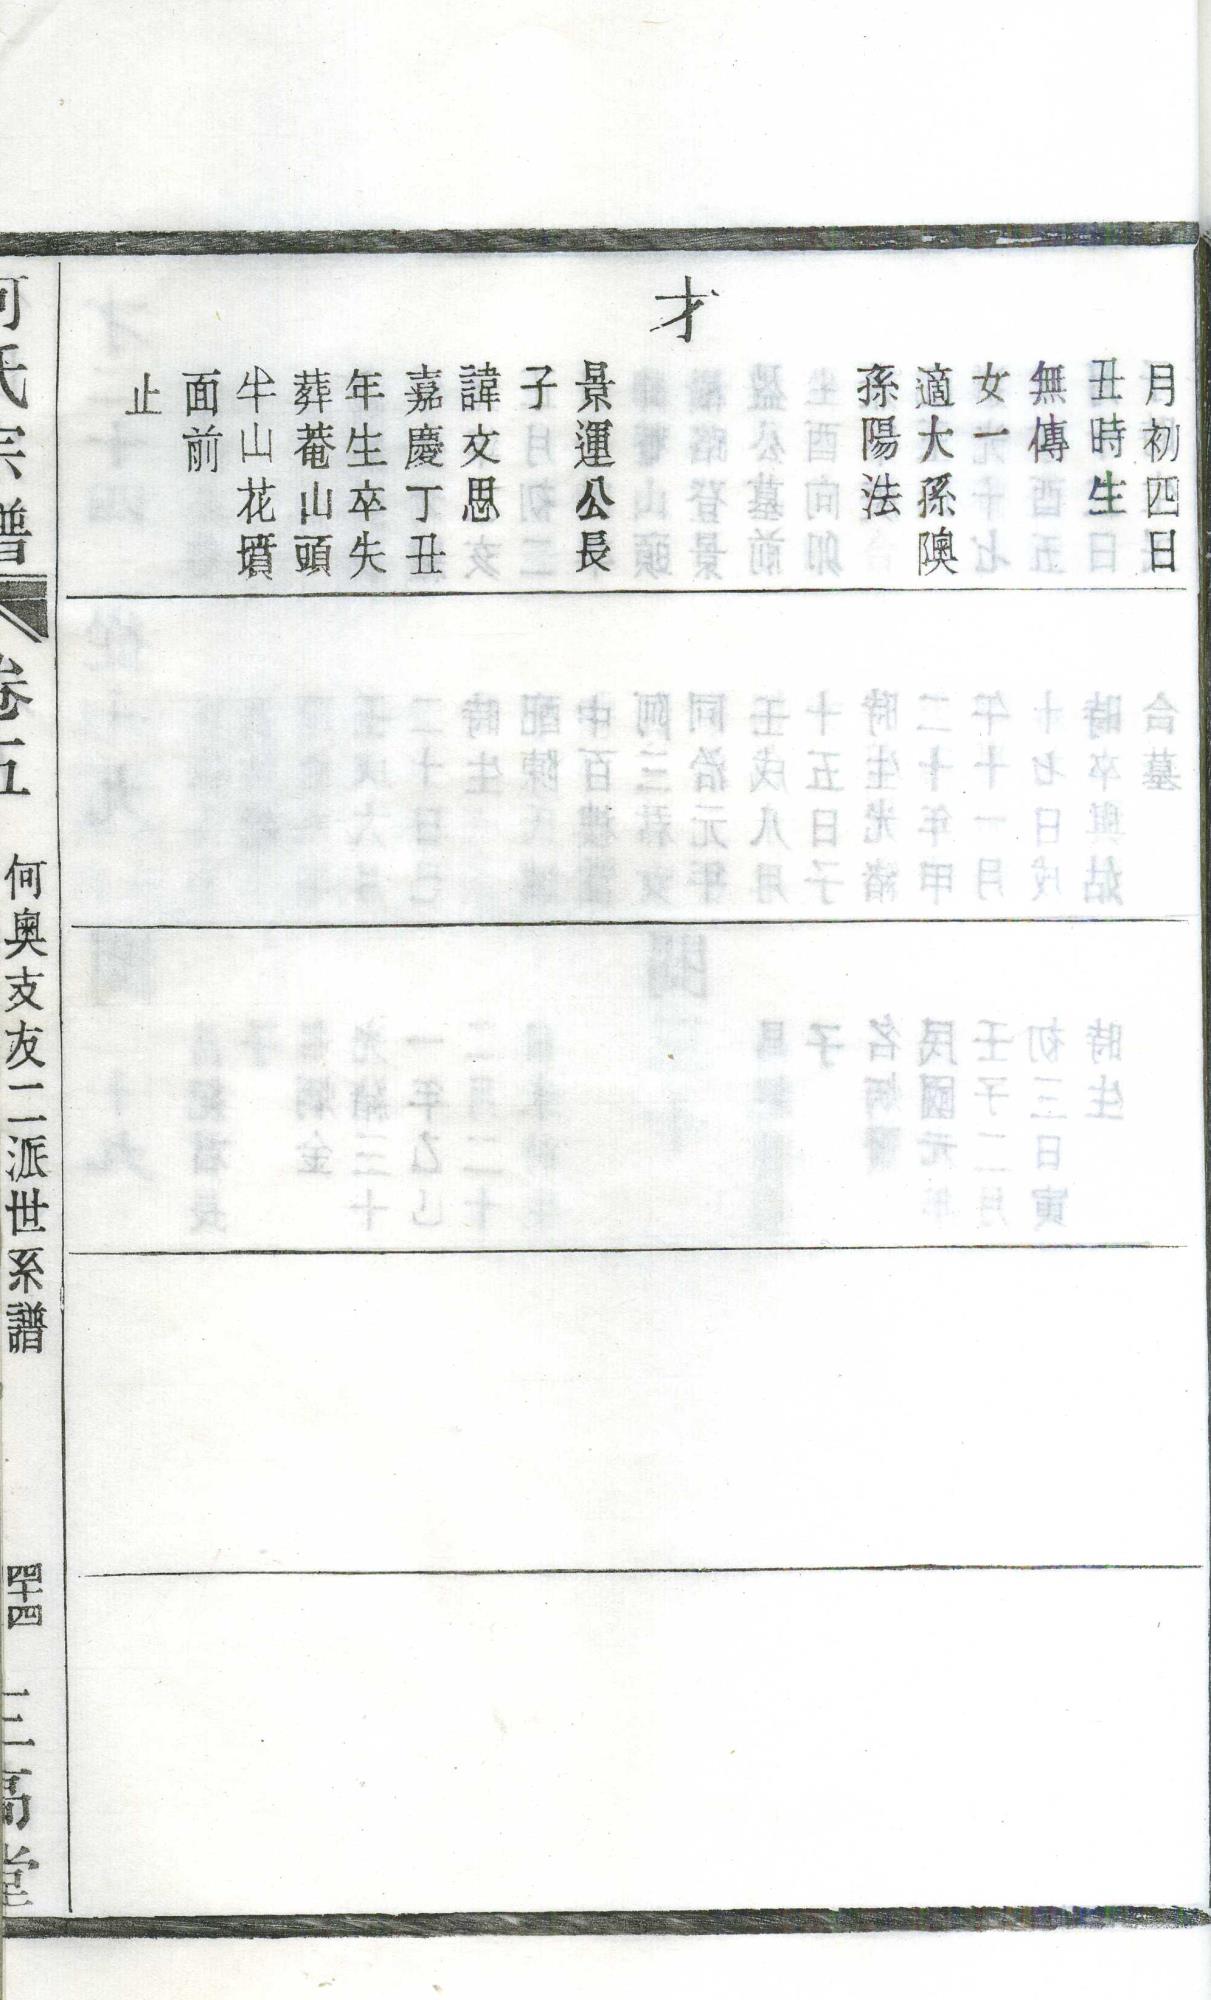 月初四日
丑時生
無傳
女一
適大孫隩
孫陽法
才
景運公長
子
諱文思
嘉慶丁丑
年生卒失
葬菴山頭
牛山花墳
面前
止
何氏宗譜
卷五
何奧支友二派世系譜
四十四
三高堂